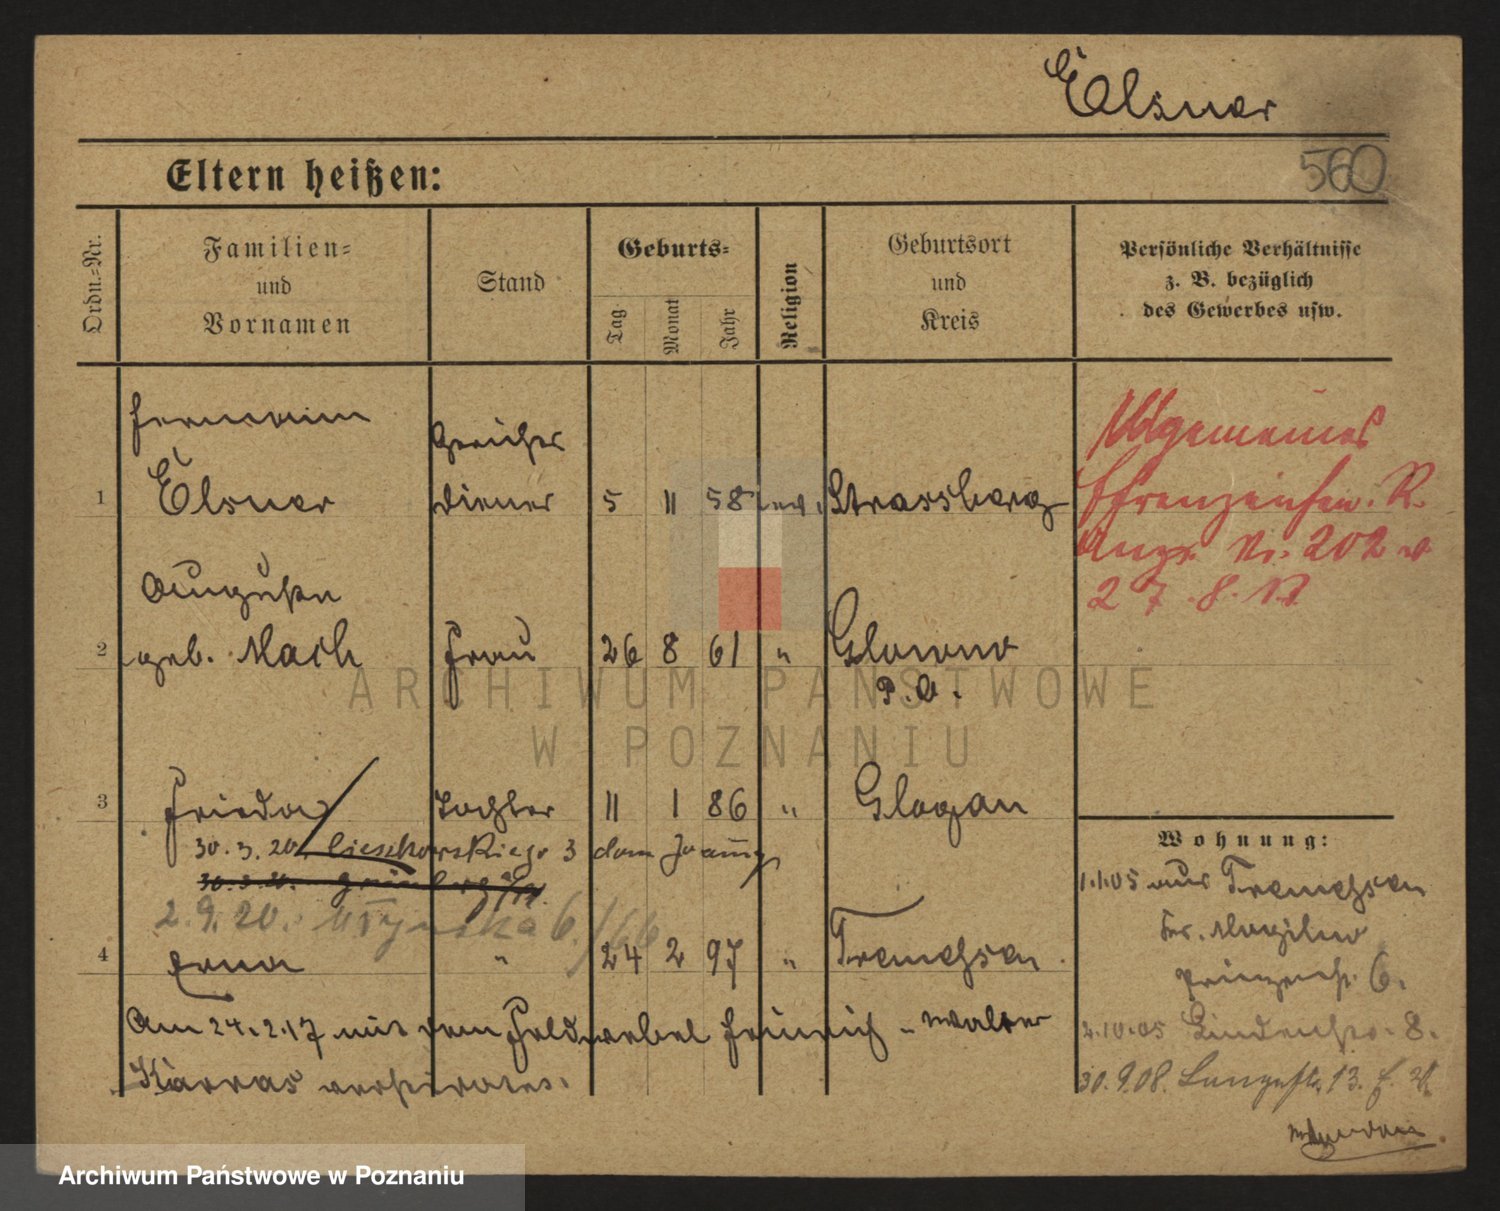 Elsner
560
Eltern heißen:
Ordn.-Nr.
Familien- und Vornamen
Stand
Geburts-
Tag
Monat
Jahr
Religion
Geburtsort und Kreis
Persönliche Verhältnisse
z. B. bezüglich
des Gewerbes usw.
Hermann
Gerichts
1 Elsner diener 5 11 58 ev. Strassburg
Allgemeines
Nr. 202
27. 8.
Auguste
2 geb. Mach Frau 26 8 61 "
P. O.
3 Frieda Tochter 11 1 86 " Glogau
30. 3. 20. Cieszkowskiego 3
30. 3. 20.
2. 9. 20. 6
4 Erna " 24 2 97 " Tremessen
Am 24.2.17 mit dem Feldwebel Heinrich - Walter
Karras verheiratet.
Wohnung:
1.1.05 aus Tremessen
Kr. Mogilno
Prinzenstr. 6.
2.10.05 Lindenstr. 8.
30.9.08. 13.
ARCHIWUM PAŃSTWOWE
W POZNANIU
Archiwum Państwowe w Poznaniu